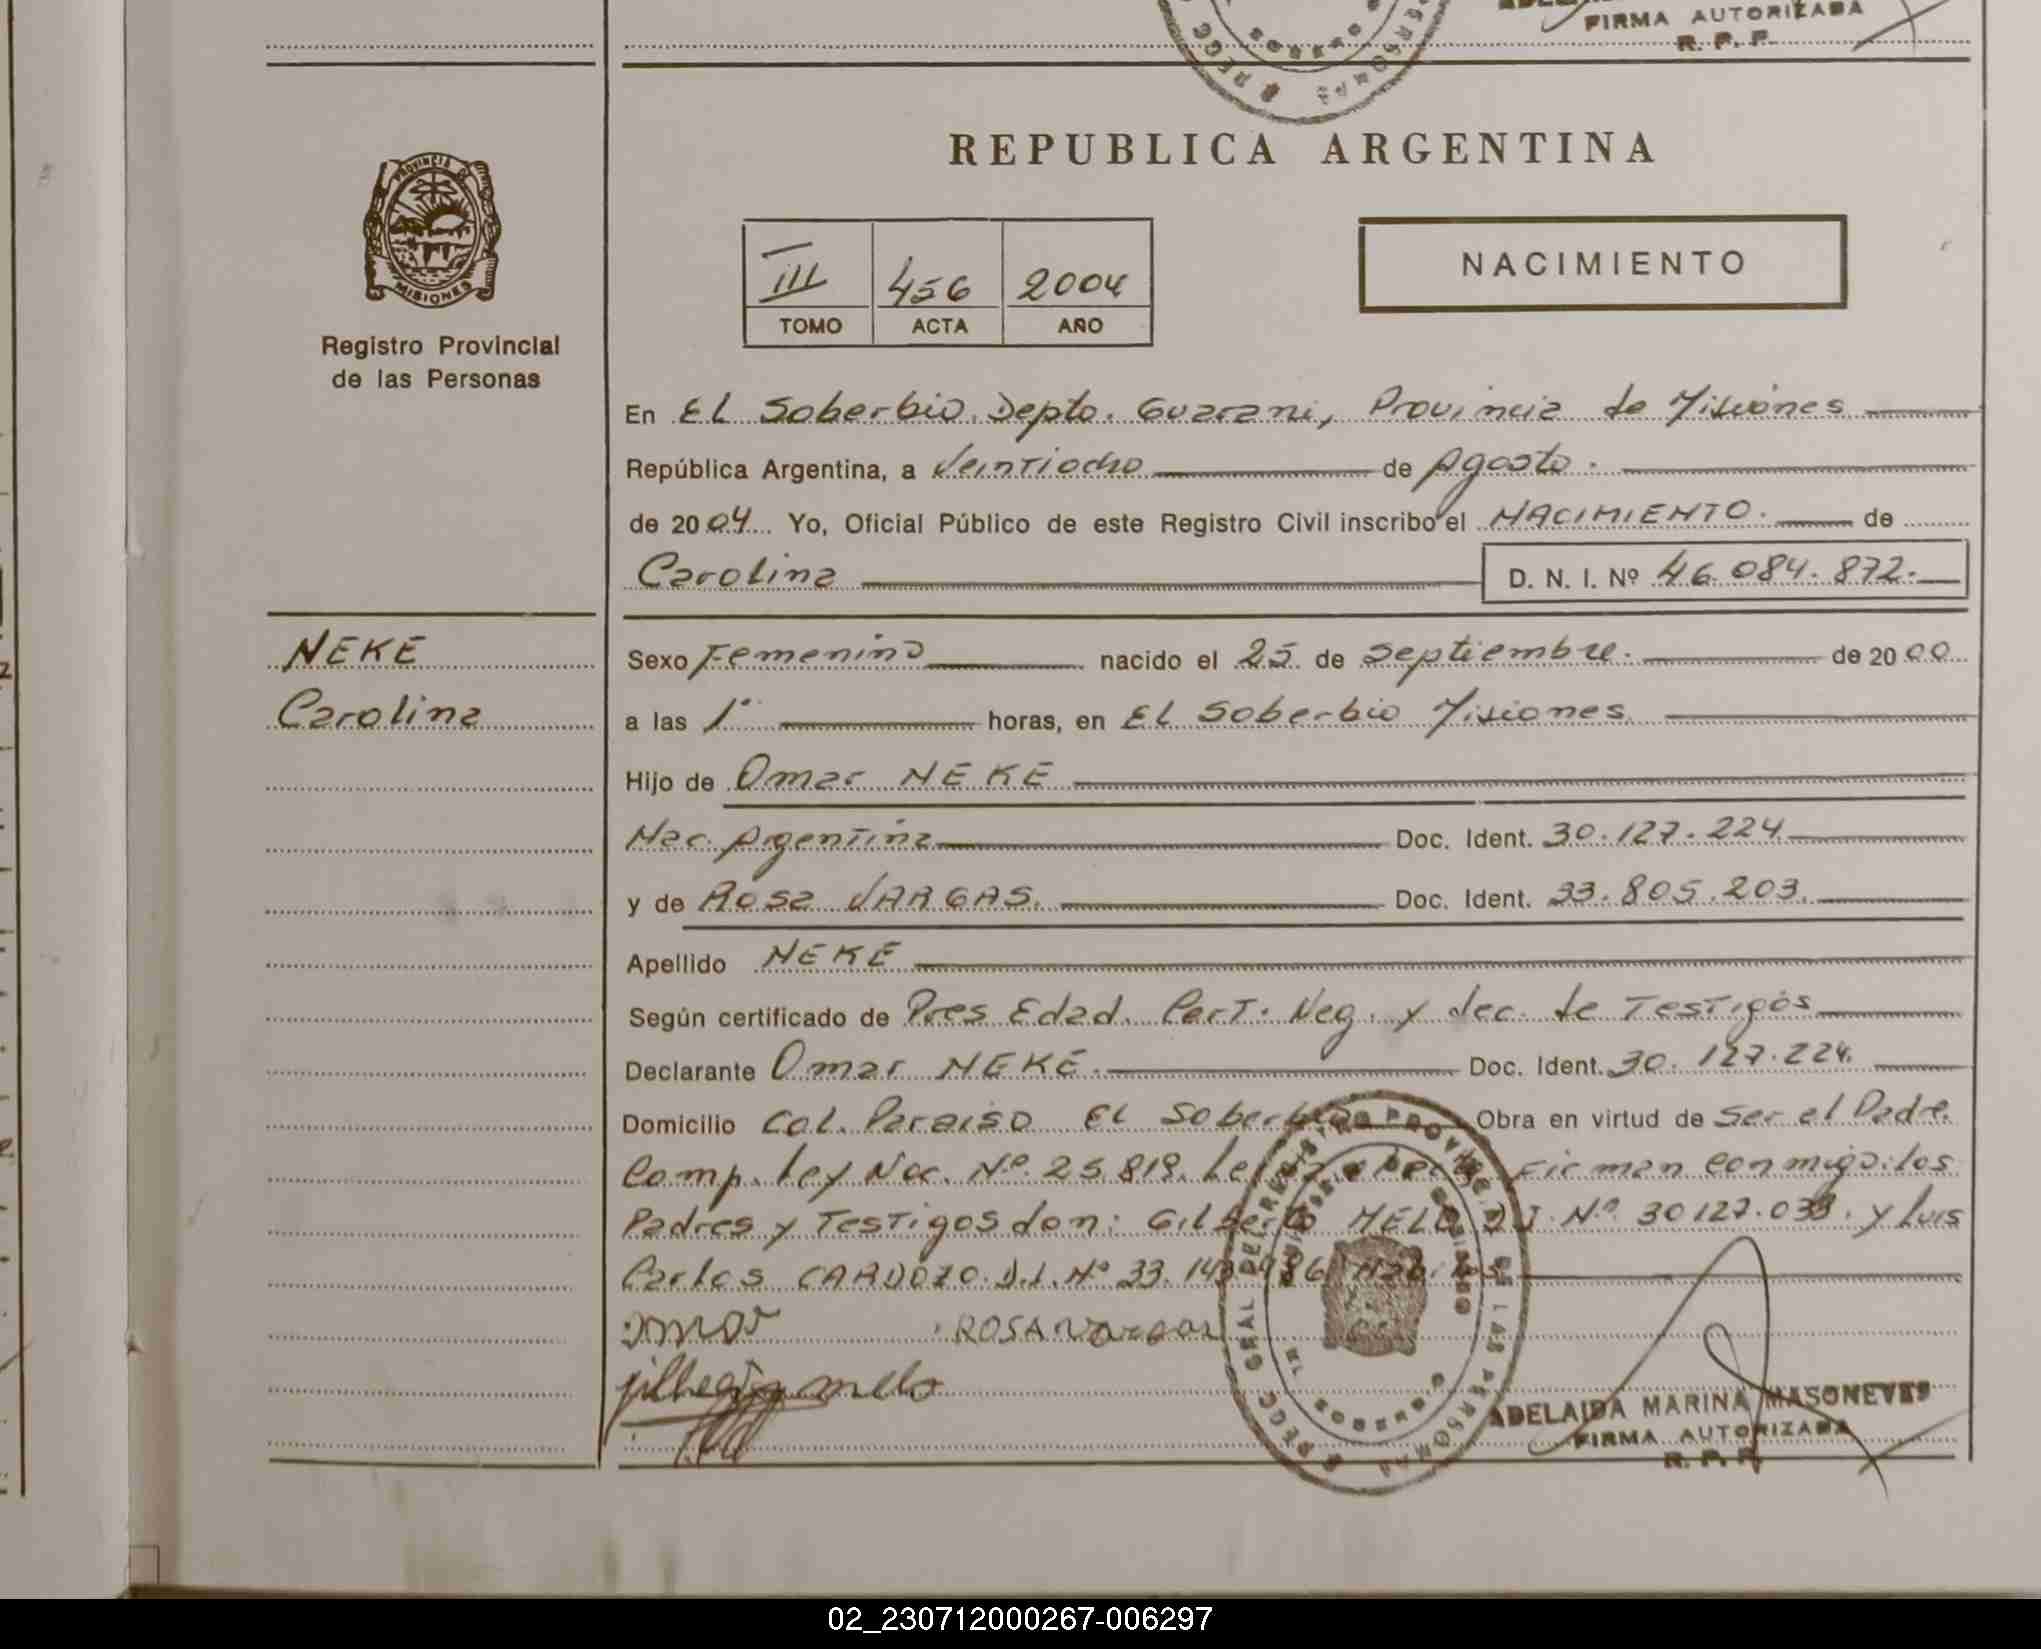 FIRMA AUTORIZADA
R. P. P.
REPUBLICA ARGENTINA
PROVINCIA DE
MISIONES
Registro Provincial
de las Personas
III 456 2004
TOMO ACTA AÑO
NACIMIENTO
En El Soberbio. Depto. Guarani, Provincia de Misiones
República Argentina, a Veintiocho de Agosto.
de 2004 Yo, Oficial Público de este Registro Civil inscribo el NACIMIENTO. de
Carolina D. N. I. Nº 46.084.872.
NEKE
Carolina
Sexo Femenino nacido el 25 de Septiembre. de 2000
a las 1º horas, en El Soberbio Misiones
Hijo de Omar NEKE
Nac. Argentina Doc. Ident. 30.127.224
y de Rosa VARGAS. Doc. Ident. 33.805.203.
Apellido NEKE
Según certificado de Pres Edad. Cert. Neg. y dec. de Testigos
Declarante Omar NEKE. Doc. Ident. 30.127.224.
Domicilio Col. Paraiso El Soberbio Obra en virtud de Ser el Padre.
Comp. ley Nac. Nº 25.819. Leida Firman conmigo los
Padres y Testigos don: Gilberto MELO D.I. Nº 30127.033. y Luis
Carlos CARDOZO. D.I. Nº 33.143.986
omar ROSA Vargas
melo
REGISTRO PROVINCIAL DE LAS PERSONAS
ADELAIDA MARINA MASONEVES
FIRMA AUTORIZADA
R. P. P.
02_230712000267-006297